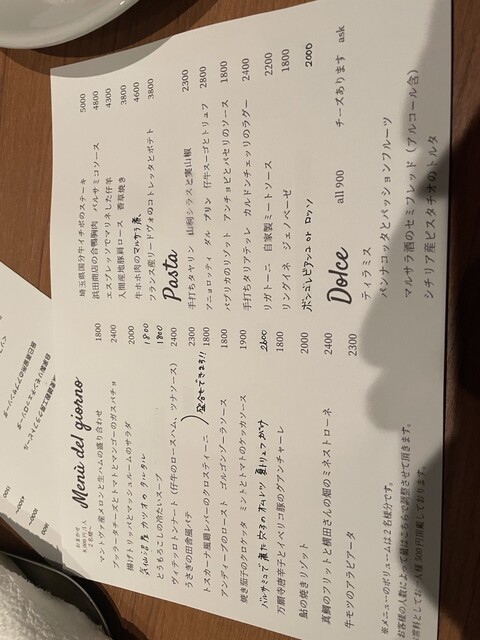 Menù del giorno
マントヴァ産メロンと生ハムの盛り合わせ 1800
ブッラータチーズとトマトとマンゴーのガスパチョ 2400
揚げトリッパとマッシュルームのサラダ 2000
気仙沼産 カツオのタルタル 1800
とうもろこしの冷たいスープ 1800
ヴィテッロトンナート (仔牛のロースハム、ツナソース) 2400
うさぎの田舎風パテ 2300
トスカーナ風鶏レバーのクロスティーニ 1800
盛合せできます!!
アンディーブのロースト ゴルゴンゾーラソース 1800
焼き茄子のクロケッタ ミントとトマトのケッカソース 1900
バルサミコで煮た穴子のオムレツ 夏トリュフがけ 2600
万願寺唐辛子とイベリコ豚のグアンチャーレ 1800
鮎の焼きリゾット 2000
真鯛のフリットと横田さんの畑のミネストローネ 2400
牛モツのアラビアータ 2300
※メニューのボリュームは2名様分です。
お客様の人数によって最適にこちらで調整させて頂きます。
埼玉県国分牛イチボのステーキ 5000
浜田商店の合鴨胸肉 バルサミコソース 4800
エスプレッソでマリネした仔羊 4300
入間産地豚肩ロース 香草焼き 3800
牛ホホ肉のマルサラ煮 4600
フランス産リードヴォのコトレッタとポテト 3800
Pasta
手打ちタヤリン 山利シラスと実山椒 2300
アニョロッティ ダル プリン 仔牛スーゴとトリュフ 2800
パプリカのリゾット アンチョビとパセリのソース 1800
手打ちタリアテッレ カルドンチェッリのラグー 2400
リガトーニ 自家製ミートソース 2200
リングイネ ジェノベーゼ 1800
2000
Dolce
all 900
チーズあります ask
ティラミス
パンナコッタとパッションフルーツ
マルサラ酒のセミフレッド (アルコール含)
シチリア産ピスタチオのトルタ